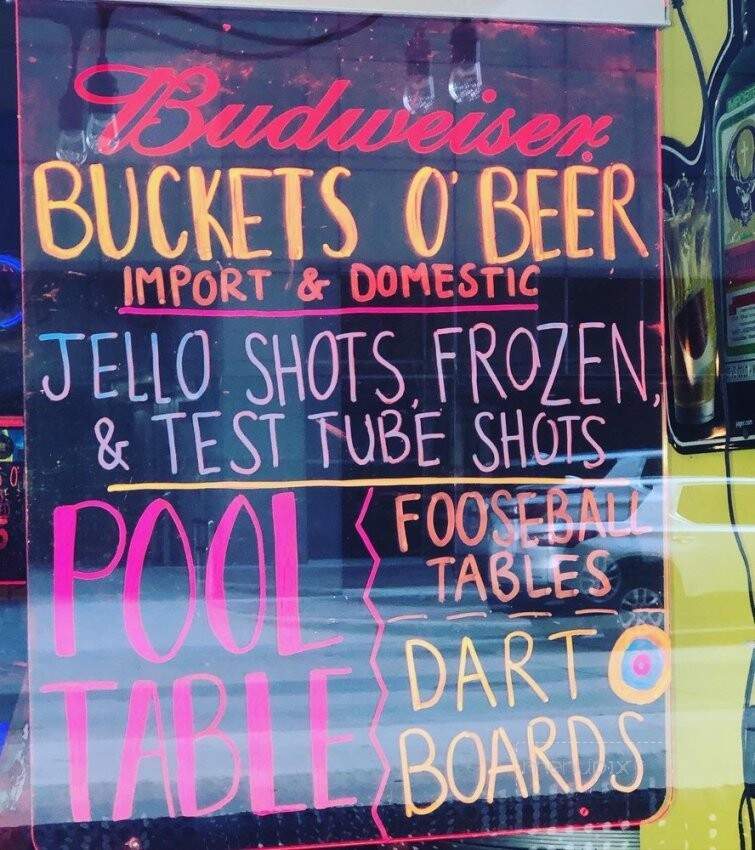 Budweiser
BUCKETS O' BEER
IMPORT & DOMESTIC
JELLO SHOTS, FROZEN,
& TEST TUBE SHOTS
POOL
TABLE
FOOSEBALL
TABLES
DART
BOARDS